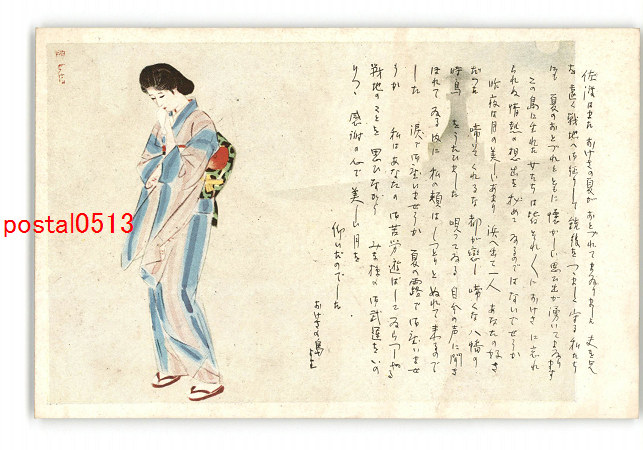 佐渡はまた おけさの夏が おとづれてまゐりました 夫を兄
を遠く戦地へ御送りして銃後を つつましく守る私たち
にも 夏のおとづれとともに 懐かしい思ひ出が湧いてまゐります
この島に生れた女たちは皆それぞれにおけさに忘れ
られぬ情熱の想出を秘めてゐるのではないでせうか
昨夜は月の美しいあまり 浜へ出て一人 あなたの好き
だつた 啼いてくれるな 都が恋し 啼くな八幡の
呼鳥 をうたひました 唄つてゐる 自分の声に聞き
ほれてゐる内に私の頬はしつとりとぬれて来るので
した 涙で御座いませうか 夏の露で御座いませ
うか 私はあなたの御苦労遊ばしてゐらつしやる
戦地のことを思ひながら みな様の御武運をいの
りつつ 感謝の心で美しい月を
仰いだのでした
おけさの島
より
postal0513